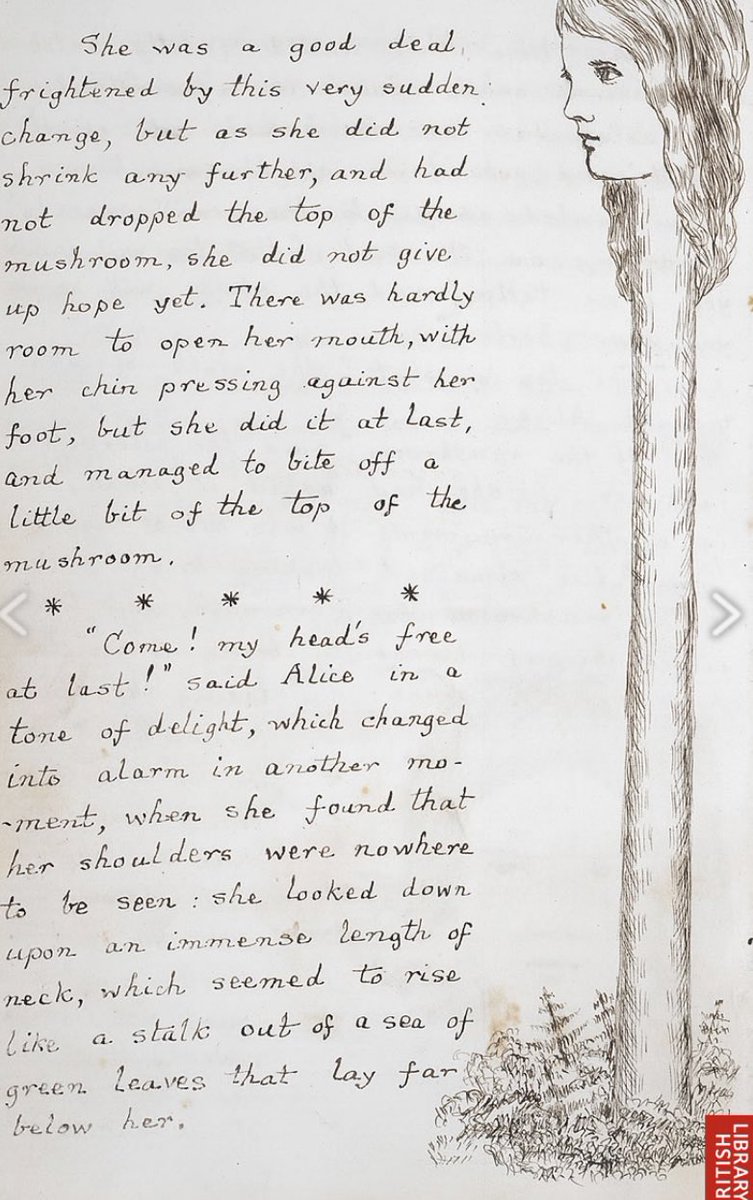 She was a good deal
frightened by this very sudden
change, but as she did not
shrink any further, and had
not dropped the top of the
mushroom, she did not give
up hope yet. There was hardly
room to open her mouth, with
her chin pressing against her
foot, but she did it at last,
and managed to bite off a
little bit of the top of the
mushroom.
* * * * *
"Come! my head's free
at last!" said Alice in a
tone of delight, which changed
into alarm in another mo-
-ment, when she found that
her shoulders were nowhere
to be seen: she looked down
upon an immense length of
neck, which seemed to rise
like a stalk out of a sea of
green leaves that lay far
below her.
RITISH
LIBRARY